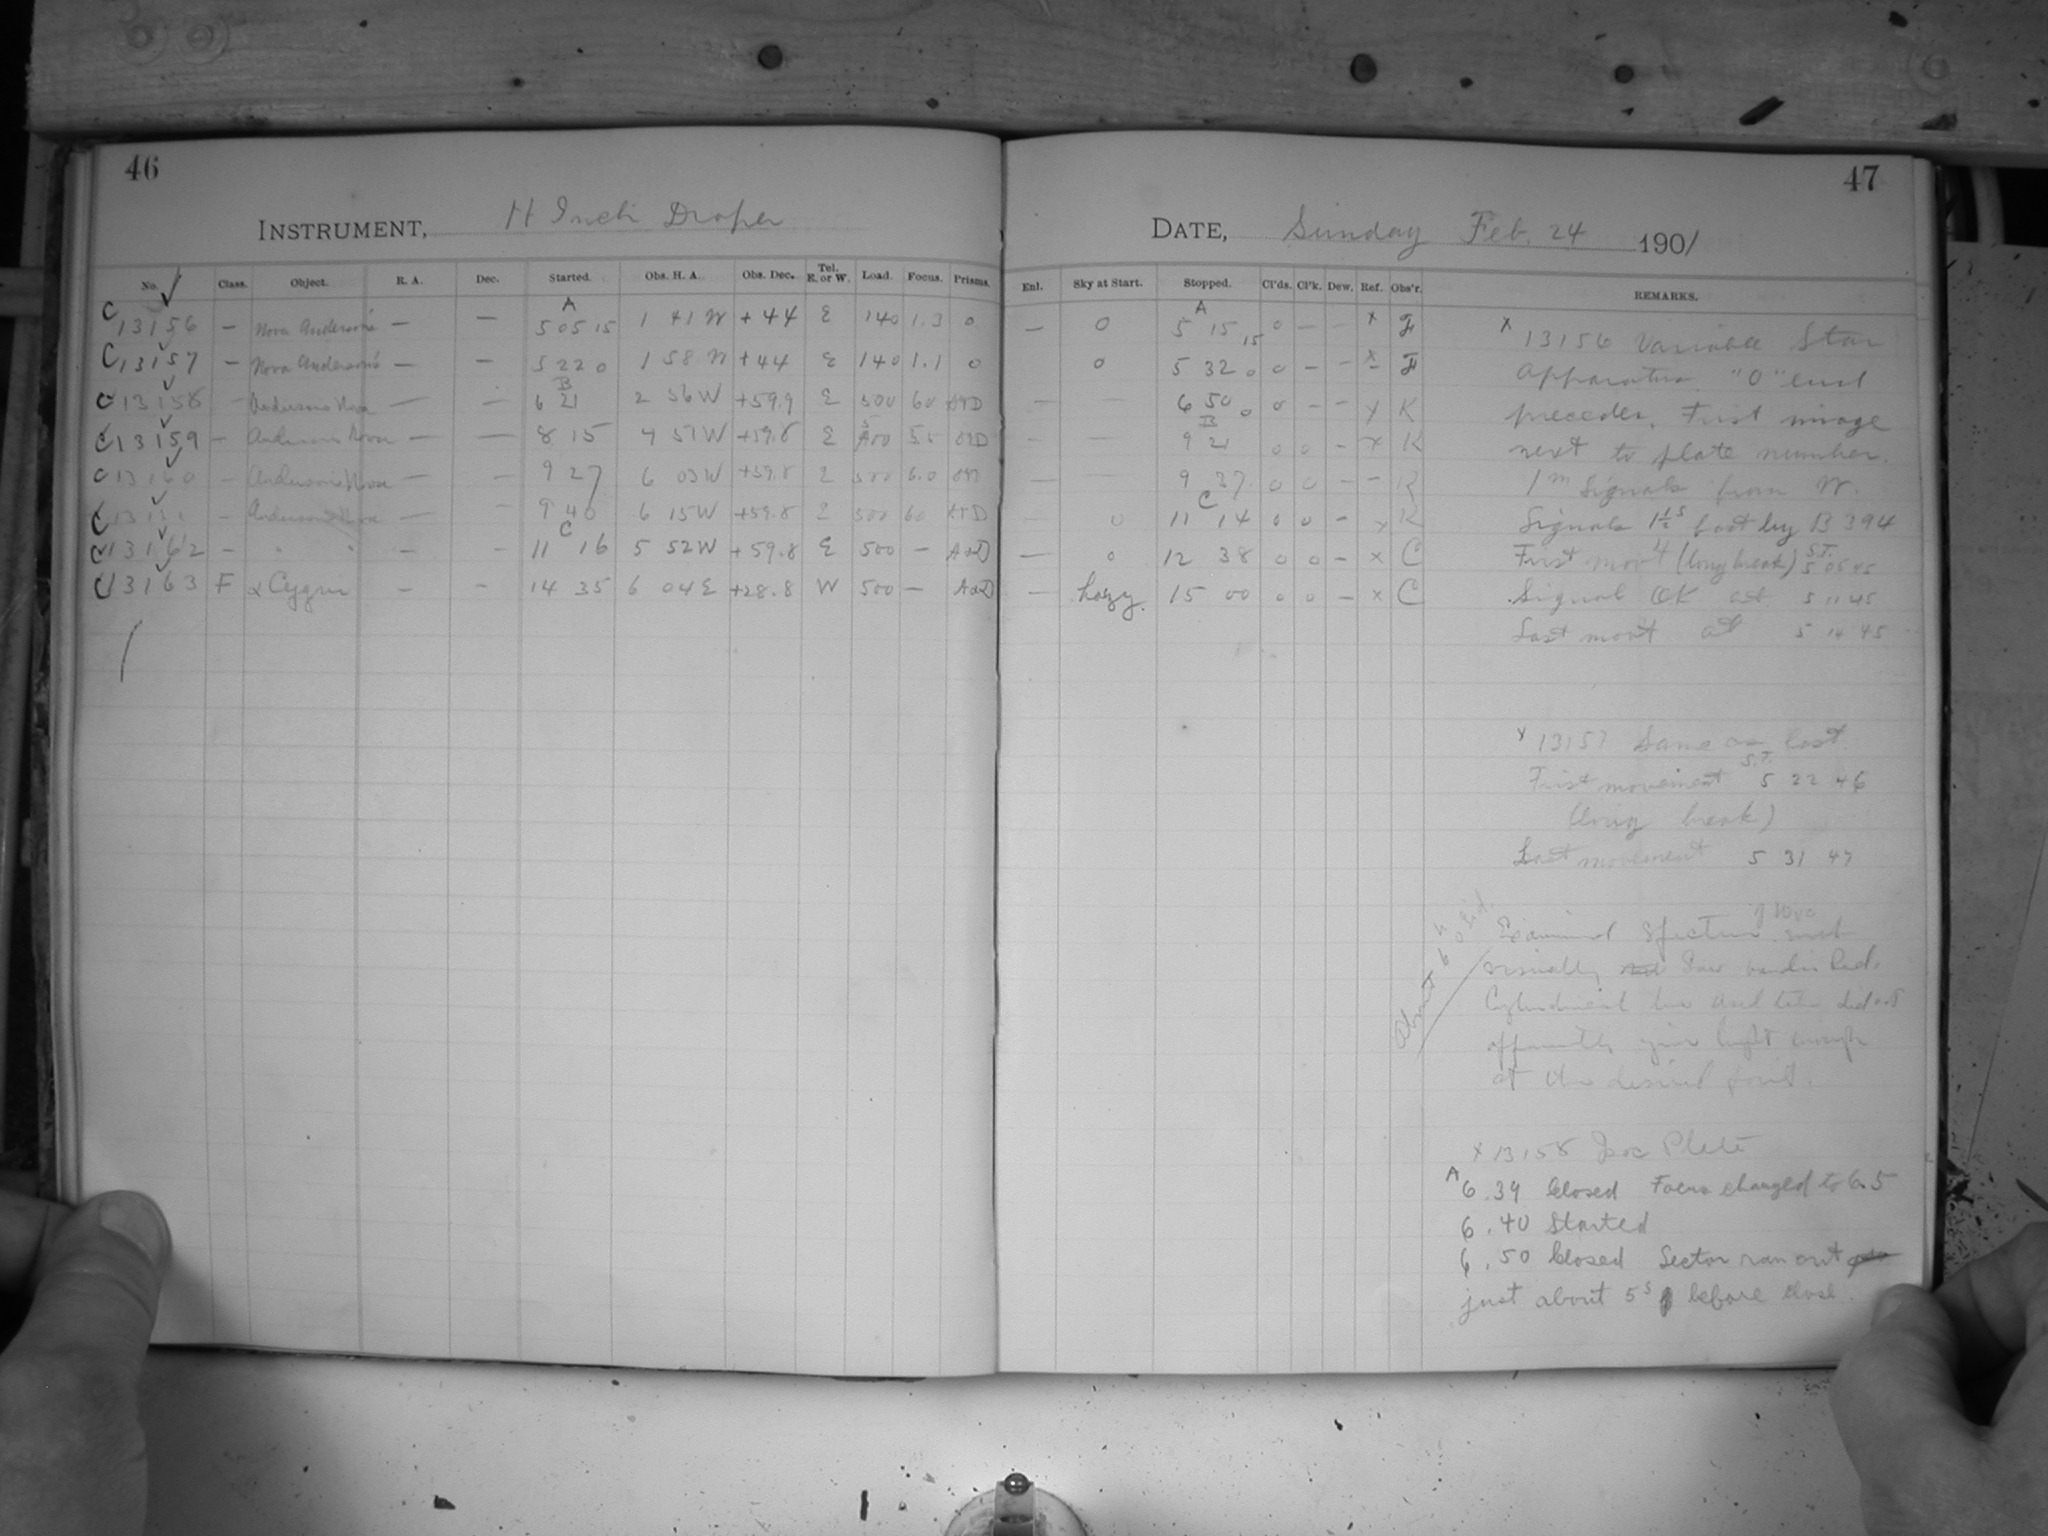 46
INSTRUMENT, 11 Inch Draper
No. Class. Object. R. A. Dec. Started. Obs. H. A. Obs. Dec. Tel. E. or W. Load. Focus. Prisms.
A
C 13156 — Nova Anderson's — — 5 05 15 1 41 W +44 E 140 1.3 0
C 13157 — Nova Anderson's — — 5 22 0 1 58 W +44 E 140 1.1 0
B
C 13158 — Anderson's Nova — — 6 21 2 56 W +59.9 E 500 6.0
C 13159 — Anderson's Nova — — 8 15 4 51 W +59.8 E 500 5.5
C 13160 — Anderson's Nova — — 9 27 6 03 W +59.8 E 500 6.0
C 13161 — Anderson's Nova — — 9 40 6 15 W +59.8 E 500 6.0
C
C 13162 — " " — — 11 16 5 52 W +59.8 E 500 —
C 13163 F α Cygni — — 14 35 6 04 E +28.8 W 500 —
47
DATE, Sunday Feb. 24 1901
Enl. Sky at Start. Stopped. Cl'ds. Cl'k. Dew. Ref. Obs'r. REMARKS.
A
— 0 5 15 15 0 — — x F
0 5 32 0 0 — — x F
— — 6 50 0 0 — — x K
B
— — 9 21 0 0 — x K
— — 9 37 0 0 — — K
C
0 11 14 0 0 — x K
— 0 12 38 0 0 — x C
— hazy. 15 00 0 0 — x C
x 13156 Variable Star
Apparatus. "O" end
precedes. First image
next to plate number.
1m Signals from W.
Signals 1½s fast by B 394
First mov't (long break) S.T. 5 05 45
Signal OK at 5 11 45
Last mov't at 5 14 45
x 13157 Same as last
S.T.
First movement 5 22 46
(long break)
Last movement 5 31 47
About 6h 0 Sid.
Examined Spectrum of Nova
visually Saw bands Red.
Cylindrical did not
apparently give light enough
at the desired point.
x 13158 Iso Plate
A 6.39 Closed Focus changed to 6.5
6.40 Started
6.50 Closed Sector ran out
just about 5s before close.